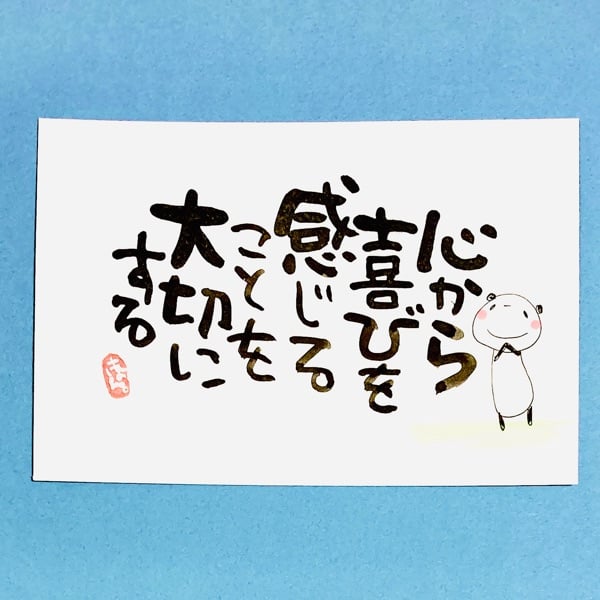 心から
喜びを
感じる
ことを
大切に
する